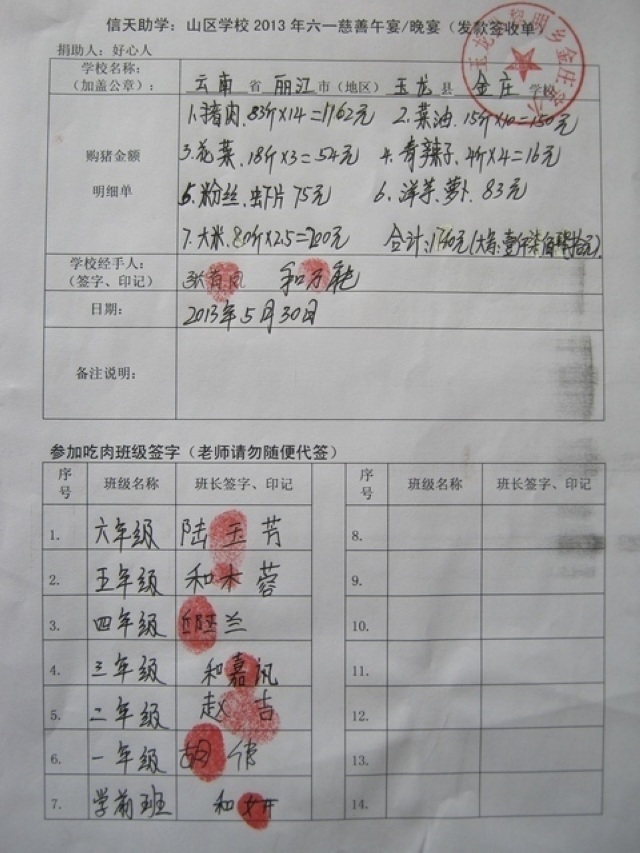 信天助学：山区学校2013年六一慈善午宴/晚宴（发款签收单）
捐助人：好心人
学校名称：
（加盖公章）：
云南 省 丽江 市（地区） 玉龙 县 金庄 学校
购猪金额
明细单
1.猪肉.83斤×14=1162元 2.菜油.15斤×10=150元
3.花菜.18斤×3=54元 4.青辣子.4斤×4=16元
5.粉丝.虾片75元 6.洋芋.萝卜.83元
7.大米.80斤×2.5=200元 合计:1740元(大写:壹仟柒佰肆拾元).
学校经手人：
（签字、印记）
和万能
日期：
2013年5月30日
备注说明：
参加吃肉班级签字（老师请勿随便代签）
序号 班级名称 班长签字、印记 序号 班级名称 班长签字、印记
1. 六年级 陆玉芳 8.
2. 五年级 和木蓉 9.
3. 四年级 10.
4. 三年级 和嘉讯 11.
5. 二年级 赵吉 12.
6. 一年级 胡 13.
7. 学前班 和妍 14.